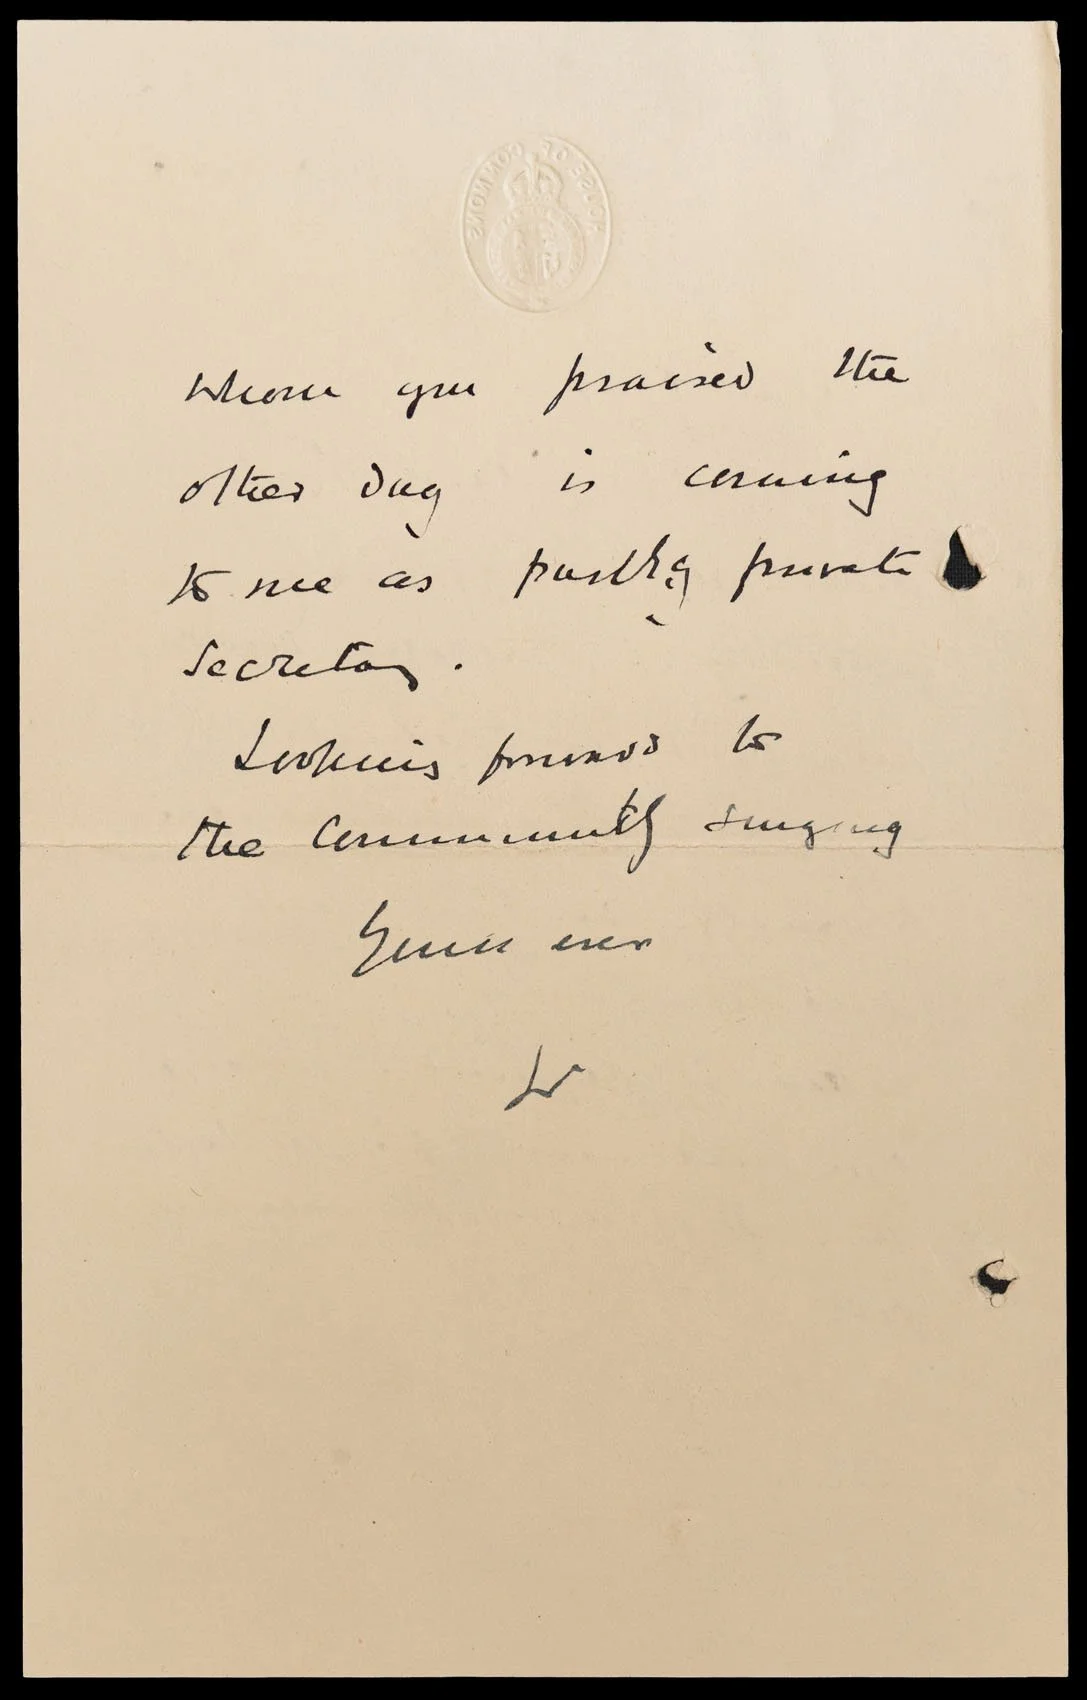 HOUSE OF COMMONS
whom you praised the
other day is coming
to me as partly private
secretary.
Looking forward to
the Community singing
Yours ever
W